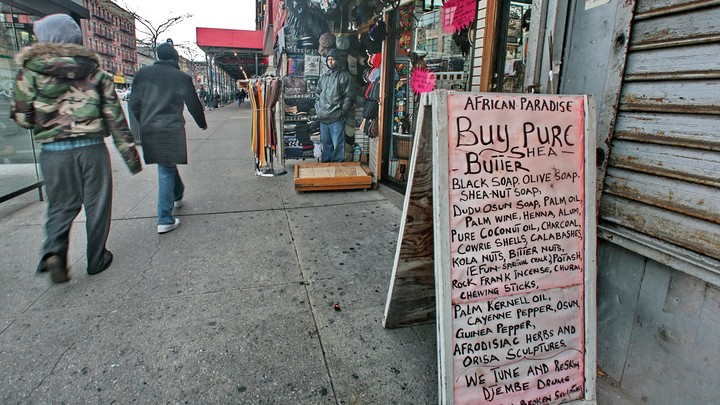 AFRICAN PARADISE
BUY PURE
SHEA
BUTTER
BLACK SOAP, OLIVE SOAP,
SHEA-NUT SOAP,
DUDU OSUN SOAP, PALM OIL,
PALM WINE, HENNA, ALUM,
PURE COCONUT OIL, CHARCOAL,
COWRIE SHELLS, CALABASHES,
KOLA NUTS, BITTER NUTS,
(EFUN-SPIRITUAL CHALK) POTASH,
ROCK FRANK INCENSE, CHURAI,
CHEWING STICKS,
PALM KERNELL OIL,
CAYENNE PEPPER, OSUN,
GUINEA PEPPER,
AFRODISIAC HERBS AND
ORISA SCULPTURES,
WE TUNE AND RESKIN
DJEMBE DRUMS
BROKEN